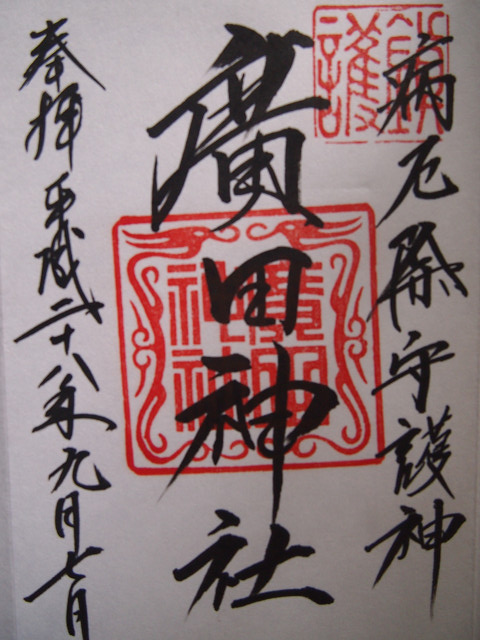 鎮護
病厄除守護神
廣田神社
廣田
神社
奉拝 平成二十八年九月七日